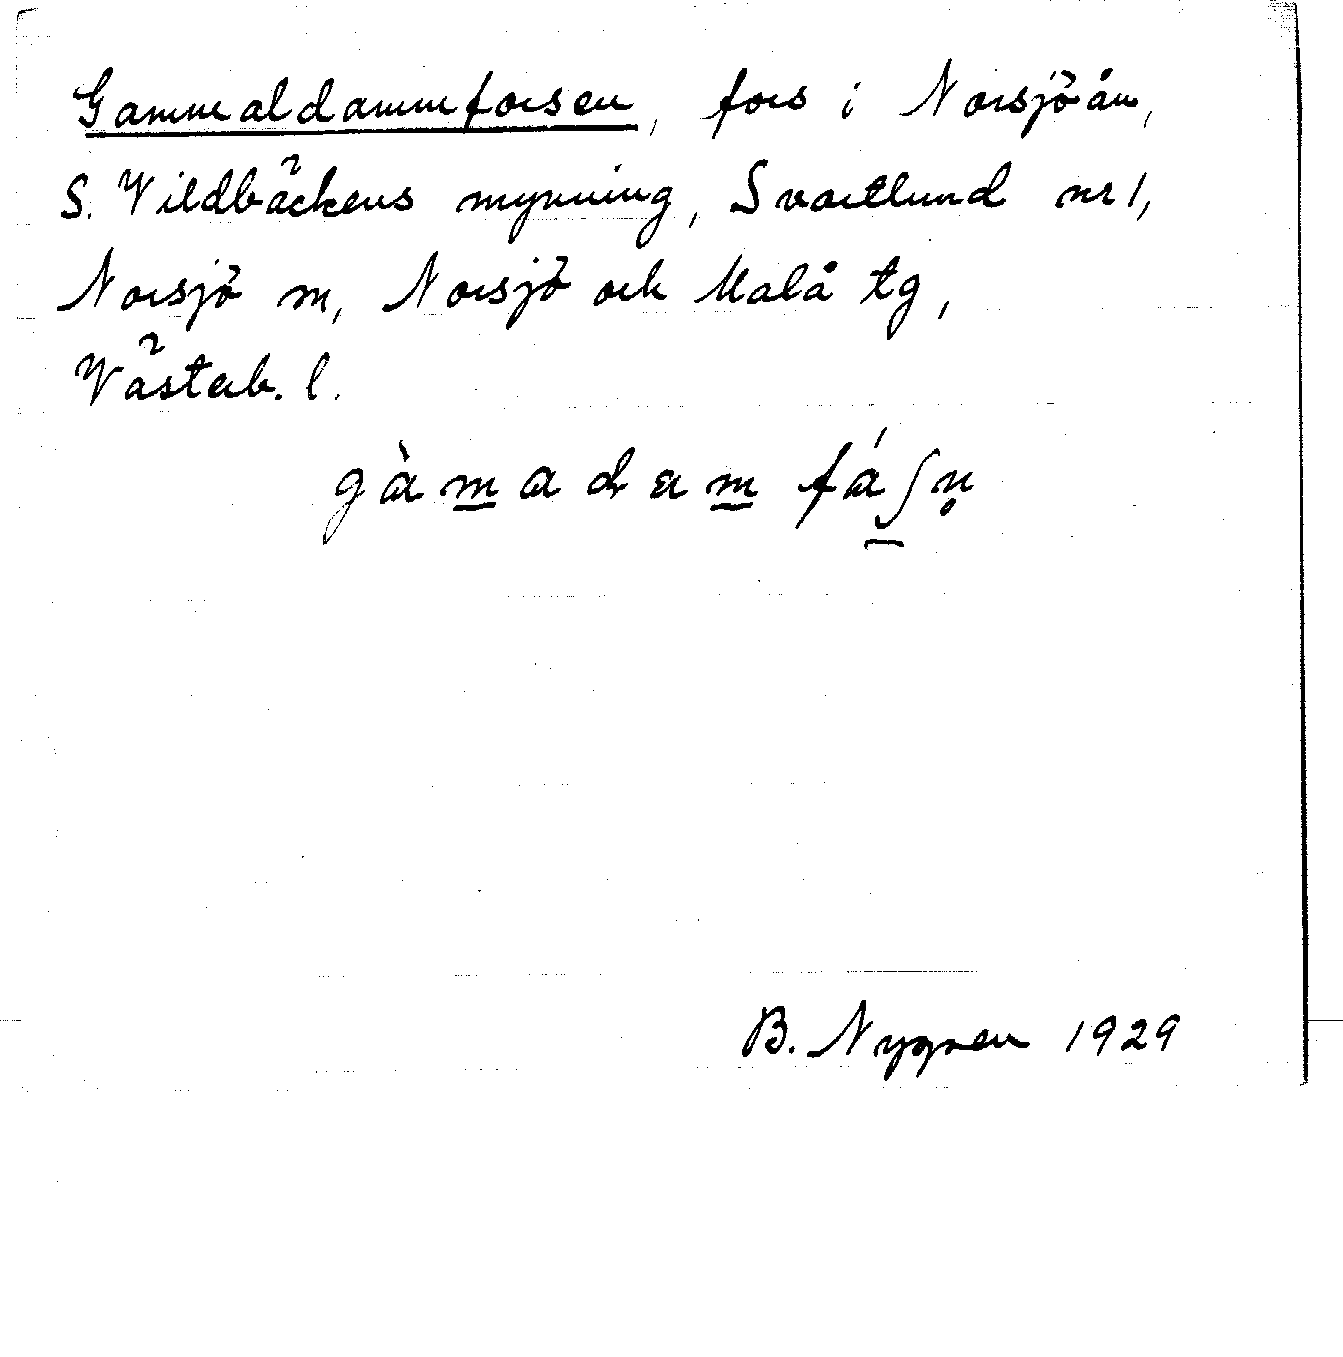 Gammaldammforsen, fors i Norsjöån,
S. Vildbäckens mynning, Svartlund nr 1,
Norsjö m, Norsjö och Malå tg,
Västerb. l.
gàm̲adam̲ fáʃ̲n̥
B. Nygren 1929